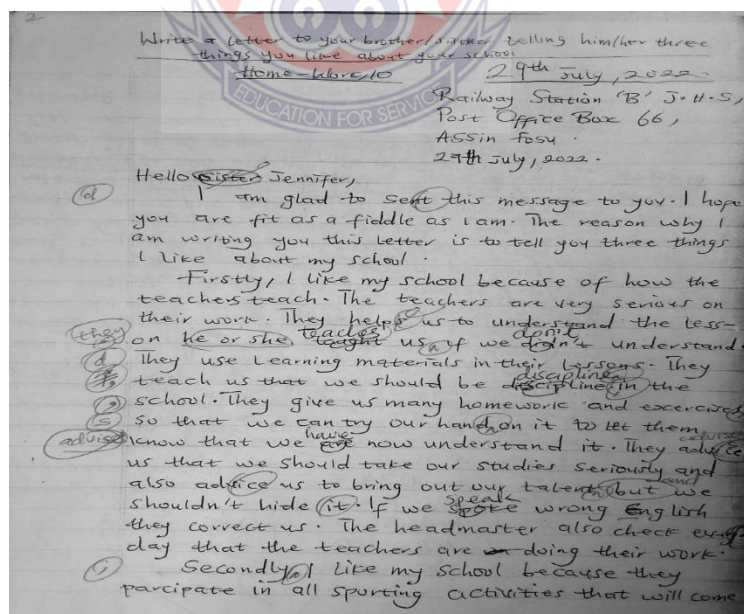 2
Write a letter to your brother/sister telling him/her three
things you like about your school
Home-Work 10 29th July, 2022.
EDUCATION FOR SERVICE
Railway Station 'B' J.H.S,
Post Office Box 66,
Assin Fosu.
29th July, 2022.
Hello sister Jennifer,
d I am glad to sent this message to you. I hope
you are fit as a fiddle as I am. The reason why I
am writing you this letter is to tell you three things
I like about my school.
Firstly, I like my school because of how the
teachers teach. The teachers are very serious on
their work. They helps us to understand the less-
they on he or she taught teaches us if we didn't don't understand.
d They use Learning materials in their lessons. They
teach us that we should be discipline discipline in the
school. They give us many homework and excercises
s so that we can try our hand on it to let them
advise know that we are have now understand it. They advice advise
us that we should take our studies seriously and
also advice us to bring out our talents but and we
shouldn't hide it. If we spoke speak wrong English
they correct us. The headmaster also check every
day that the teachers are doing their work.
Secondly, I like my school because they
parcipate in all sporting activities that will come